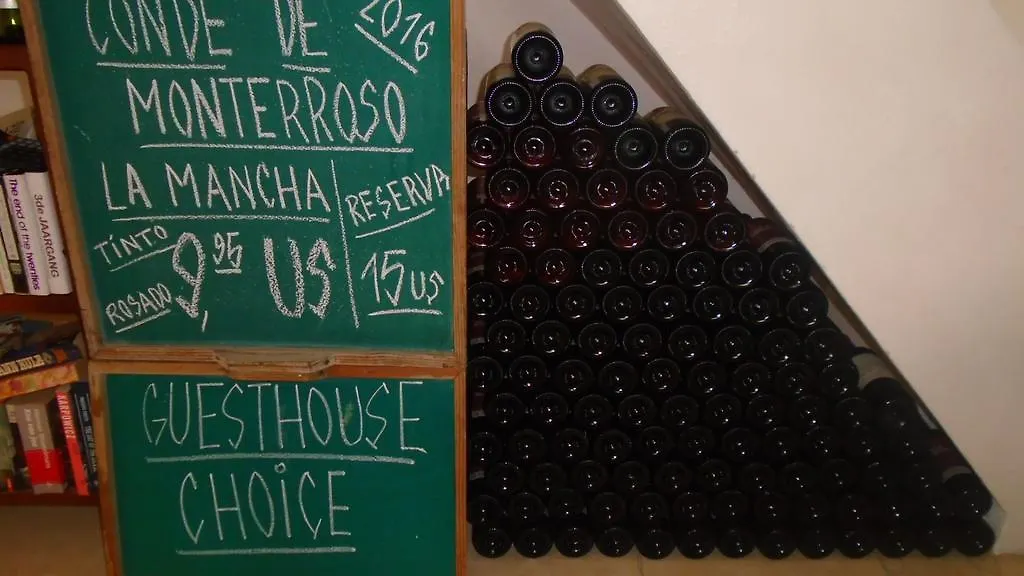 CONDE DE 2016
MONTERROSO
LA MANCHA
RESERVA
TINTO
ROSADO
9,95 US
15 US
GUESTHOUSE
CHOiCE
3de JAARGANG
The end of the twenties